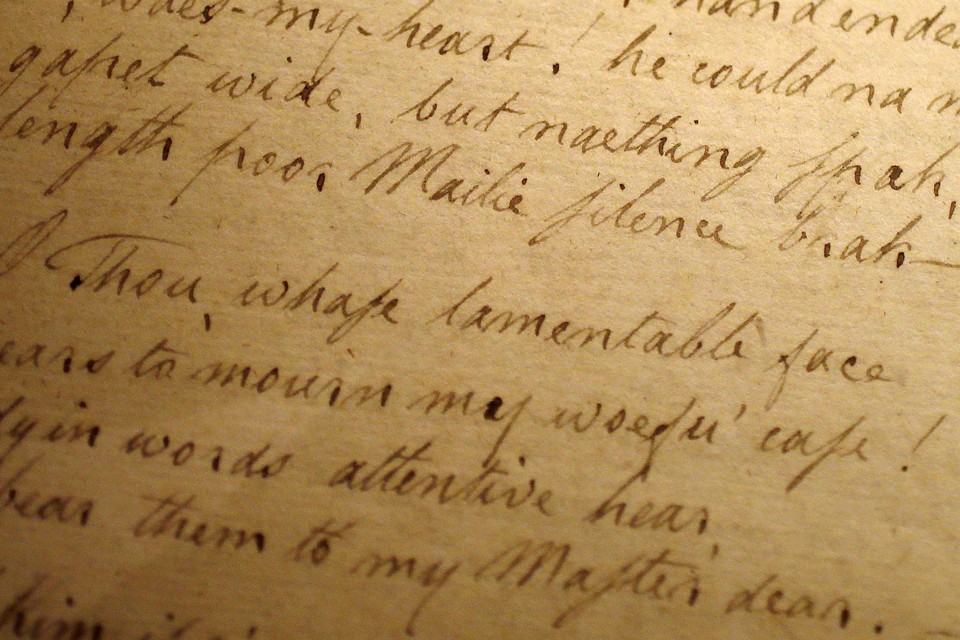 hand endea
waes-my-heart! he could na
gapet wide, but naething ſpak,
length poor Mailie ſilence brak—
O Thou, whaſe lamentable face
ears to mourn my woefu' caſe!
dyin words attentive hear,
bear them to my Maſter dear.
him